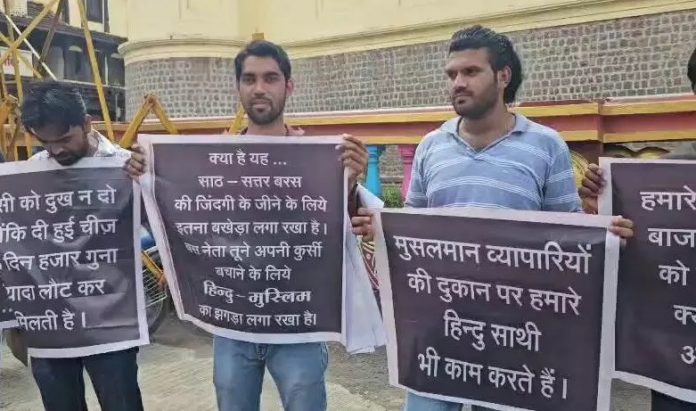 सी को दुख न दो
कि दी हुई चीज़
दिन हजार गुना
यादा लौट कर
मिलती है।
क्या है यह ...
साठ – सत्तर बरस
की जिंदगी के जीने के लिये
इतना बखेड़ा लगा रखा है।
बस नेता तूने अपनी कुर्सी
बचाने के लिये
हिन्दु – मुस्लिम
का झगड़ा लगा रखा है।
मुसलमान व्यापारियों
की दुकान पर हमारे
हिन्दु साथी
भी काम करते हैं।
हमारे
बाज
को